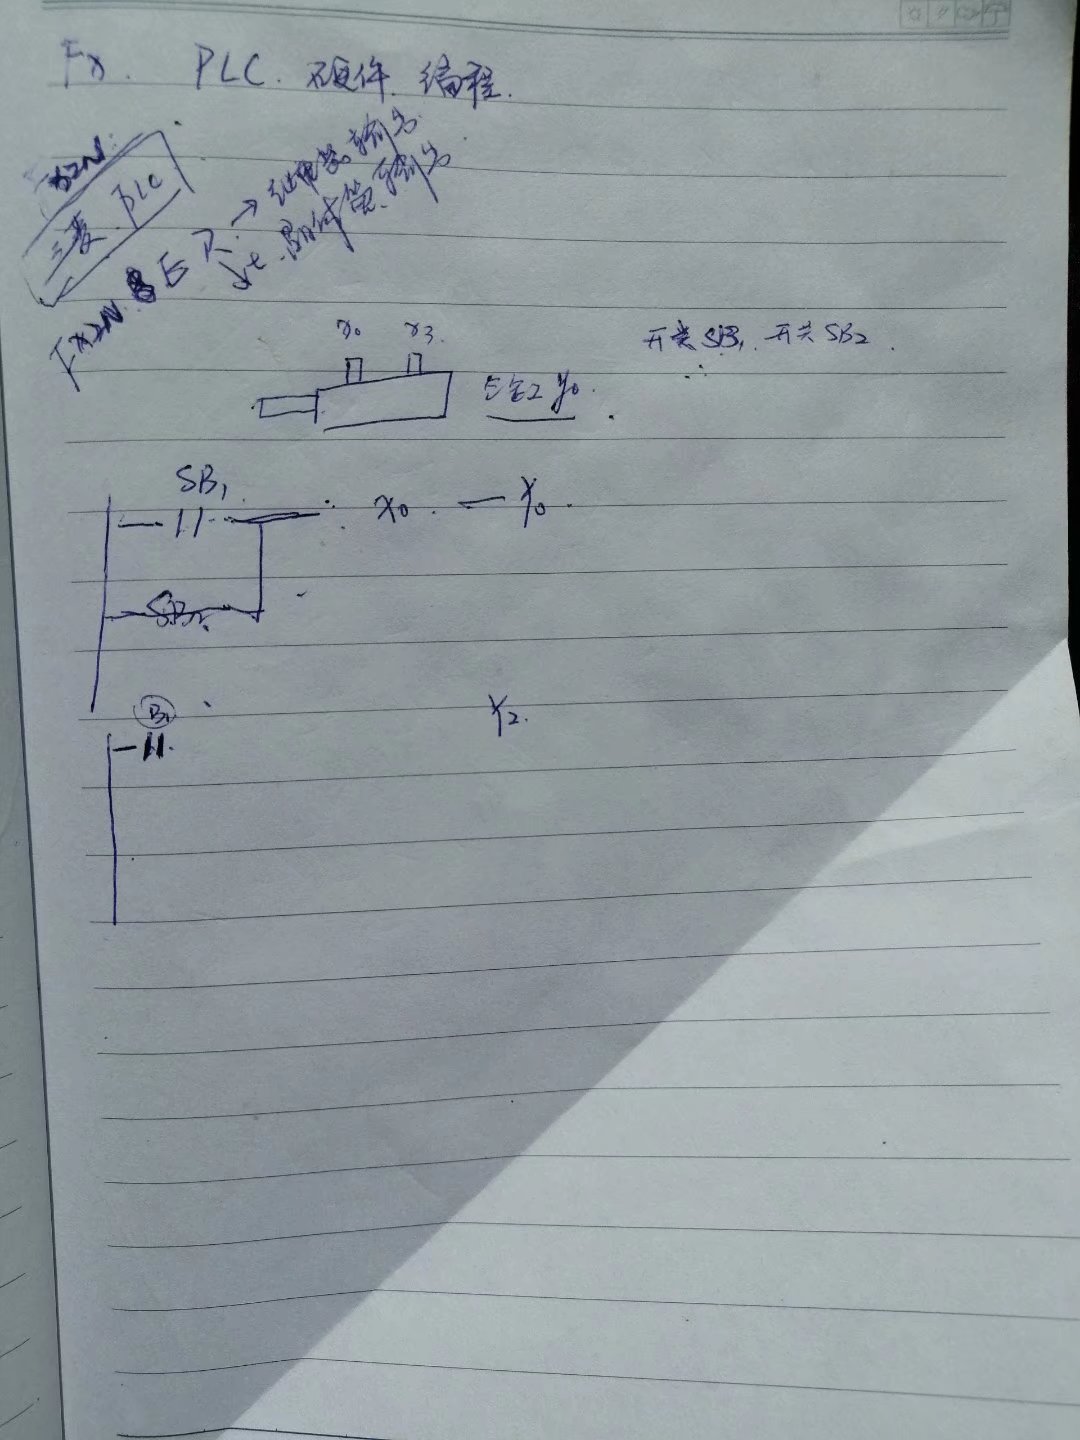 Fx. PLC. 硬件. 编程.
FX2N.
三菱 PLC
FX2N. E R. → 继电器输出.
↓t. 晶体管输出
x0 x3.
开关SB1. 开关SB2.
y0.
SB1
X0. — Y0.
SB2
B1
Y2.